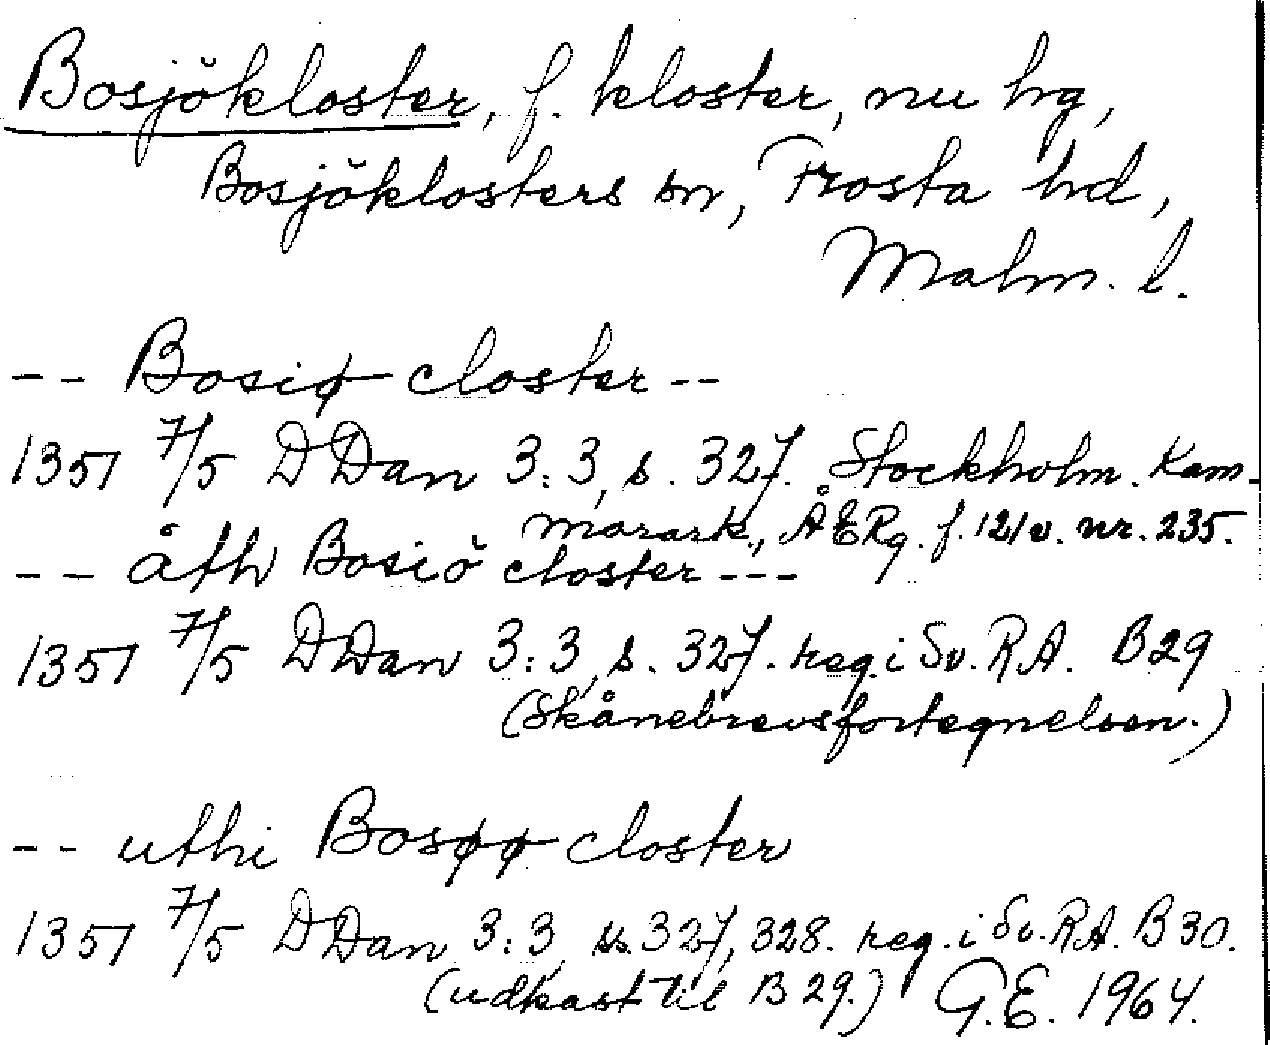 Bosjökloster, f. kloster, nu hg,
Bosjöklosters sn, Frosta hd,
Malm. l.
-- Bosiø closter --
1351 7/5 DDan 3:3, s. 327. Stockholm. Kam-
marark., ÅERg. f. 121v. nr. 235.
-- åth Bosiö closter ---
1351 7/5 DDan 3:3, s. 327. reg. i Sv. RA. B29
(Skånebrevsfortegnelsen.)
-- uthi Bosøø closter
1351 7/5 DDan 3:3, ss. 327, 328. reg. i Sv. RA. B30.
(udkast til B 29.) G.E. 1964.